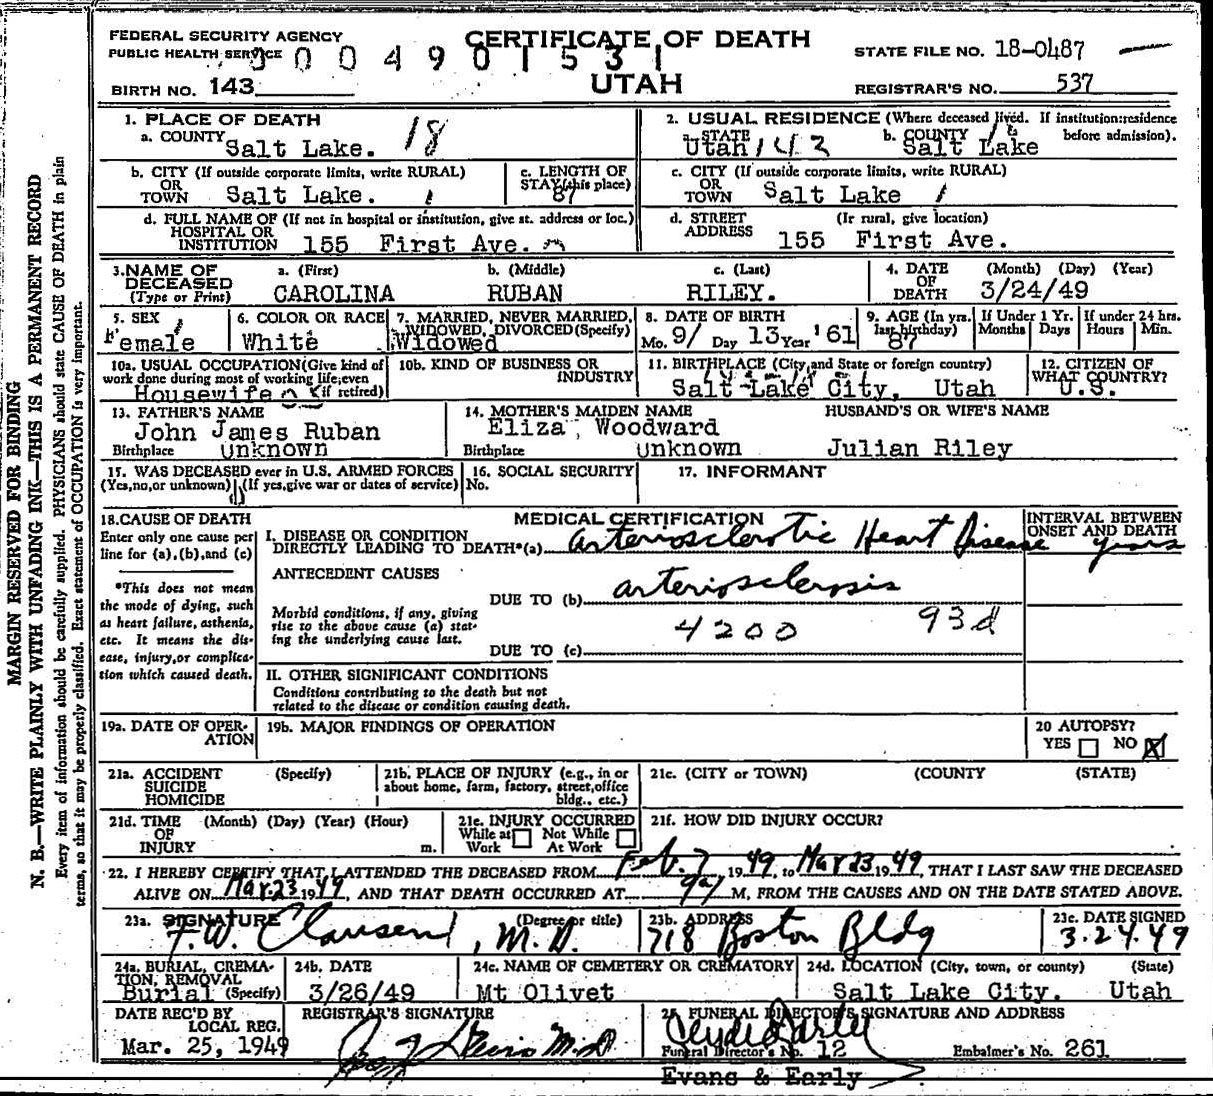 FEDERAL SECURITY AGENCY
PUBLIC HEALTH SERVICE
CERTIFICATE OF DEATH
0004901531
UTAH
STATE FILE NO. 18-0487
BIRTH NO. 143
REGISTRAR'S NO. 537
1. PLACE OF DEATH
a. COUNTY
Salt Lake. 18
2. USUAL RESIDENCE (Where deceased lived. If institution:residence before admission).
a. STATE
Utah 143
b. COUNTY
Salt Lake
b. CITY (If outside corporate limits, write RURAL)
OR
TOWN Salt Lake. 1
c. LENGTH OF STAY (this place)
87
c. CITY (If outside corporate limits, write RURAL)
OR
TOWN Salt Lake 1
d. FULL NAME OF (If not in hospital or institution, give st. address or loc.)
HOSPITAL OR
INSTITUTION 155 First Ave.
d. STREET (Ir rural, give location)
ADDRESS 155 First Ave.
3. NAME OF DECEASED (Type or Print)
a. (First) b. (Middle) c. (Last)
CAROLINA RUBAN RILEY.
4. DATE OF DEATH (Month) (Day) (Year)
3/24/49
5. SEX
Female
6. COLOR OR RACE
White
7. MARRIED, NEVER MARRIED, WIDOWED, DIVORCED (Specify)
Widowed
8. DATE OF BIRTH
Mo. 9/ Day 13 Year '61
9. AGE (In yrs. last birthday)
87
If Under 1 Yr. Months Days
If under 24 hrs. Hours Min.
10a. USUAL OCCUPATION (Give kind of work done during most of working life, even if retired)
Housewife
10b. KIND OF BUSINESS OR INDUSTRY
11. BIRTHPLACE (City, and State or foreign country)
Salt Lake City, Utah
12. CITIZEN OF WHAT COUNTRY?
U.S.
13. FATHER'S NAME
John James Ruban
Birthplace unknown
14. MOTHER'S MAIDEN NAME
Eliza, Woodward
Birthplace unknown
HUSBAND'S OR WIFE'S NAME
Julian Riley
15. WAS DECEASED ever in U.S. ARMED FORCES
(Yes, no, or unknown) (If yes, give war or dates of service)
16. SOCIAL SECURITY No.
17. INFORMANT
18. CAUSE OF DEATH
Enter only one cause per line for (a), (b), and (c)
*This does not mean the mode of dying, such as heart failure, asthenia, etc. It means the disease, injury, or complication which caused death.
MEDICAL CERTIFICATION
INTERVAL BETWEEN ONSET AND DEATH
I. DISEASE OR CONDITION
DIRECTLY LEADING TO DEATH*(a) Arteriosclerotic Heart Disease years
ANTECEDENT CAUSES
DUE TO (b) arteriosclerosis
Morbid conditions, if any, giving rise to the above cause (a) stating the underlying cause last.
4200 93d
DUE TO (c)
II. OTHER SIGNIFICANT CONDITIONS
Conditions contributing to the death but not related to the disease or condition causing death.
19a. DATE OF OPERATION
19b. MAJOR FINDINGS OF OPERATION
20 AUTOPSY?
YES NO X
21a. ACCIDENT SUICIDE HOMICIDE (Specify)
21b. PLACE OF INJURY (e.g., in or about home, farm, factory, street, office bldg., etc.)
21c. (CITY or TOWN) (COUNTY) (STATE)
21d. TIME OF INJURY (Month) (Day) (Year) (Hour) m.
21e. INJURY OCCURRED
While at Work Not While At Work
21f. HOW DID INJURY OCCUR?
22. I HEREBY CERTIFY THAT I ATTENDED THE DECEASED FROM Feb. 7, 1949, to Mar 23, 1949, THAT I LAST SAW THE DECEASED
ALIVE ON Mar 23 1949, AND THAT DEATH OCCURRED AT M, FROM THE CAUSES AND ON THE DATE STATED ABOVE.
23a. SIGNATURE (Degree or title)
F.W. Clausen, M.D.
23b. ADDRESS
718 Boston Bldg
23c. DATE SIGNED
3.24.49
24a. BURIAL, CREMATION, REMOVAL (Specify)
Burial
24b. DATE
3/26/49
24c. NAME OF CEMETERY OR CREMATORY
Mt Olivet
24d. LOCATION (City, town, or county) (State)
Salt Lake City. Utah
DATE REC'D BY LOCAL REG.
Mar. 25, 1949
REGISTRAR'S SIGNATURE
M.D
25. FUNERAL DIRECTOR'S SIGNATURE AND ADDRESS
Funeral Director's No. 12 Embalmer's No. 261
Evans & Early
MARGIN RESERVED FOR BINDING
N. B.—WRITE PLAINLY WITH UNFADING INK—THIS IS A PERMANENT RECORD
Every item of information should be carefully supplied. PHYSICIANS should state CAUSE OF DEATH in plain
terms, so that it may be properly classified. Exact statement of OCCUPATION is very important.